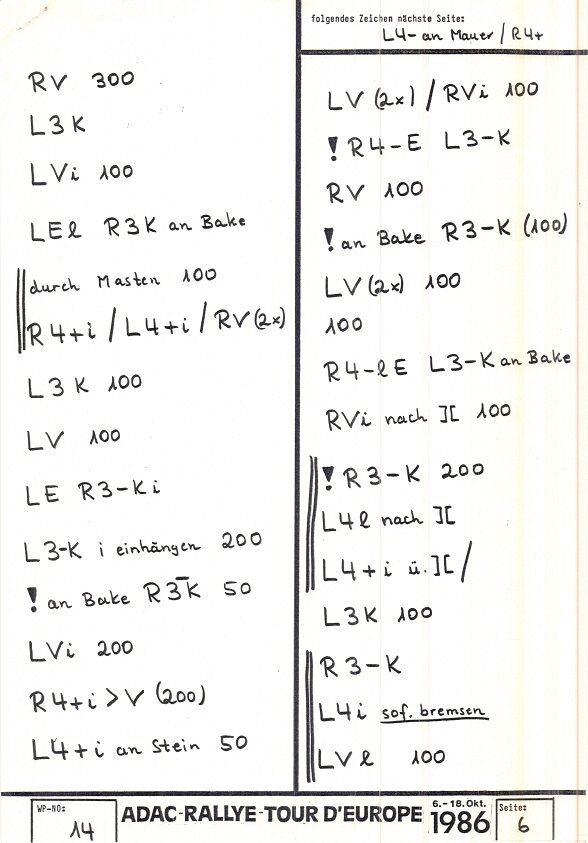 folgendes Zeichen nächste Seite:
L4- an Mauer / R4+
RV 300
L3K
LVi 100
LEl R3K an Bake
durch Masten 100
R4+i / L4+i / RV (2x)
L3K 100
LV 100
LE R3-Ki
L3-K i einhängen 200
! an Bake R3-K 50
LVi 200
R4+i > V (200)
L4+i an Stein 50
LV (2x) / RVi 100
! R4-E L3-K
RV 100
! an Bake R3-K (100)
LV (2x) 100
100
R4-lE L3-K an Bake
RVi nach ][ 100
! R3-K 200
L4l nach ][
L4+i ü. ][ /
L3K 100
R3-K
L4i sof. bremsen
LVl 100
WP-NO: 14
ADAC-RALLYE-TOUR D'EUROPE
6.-18. Okt. 1986
Seite: 6